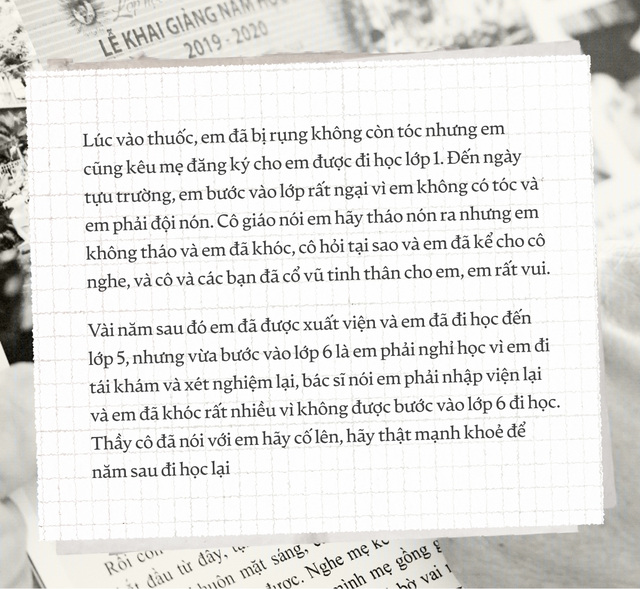 LỄ KHAI GIẢNG NĂM
2019 - 2020
Lúc vào thuốc, em đã bị rụng không còn tóc nhưng em
cũng kêu mẹ đăng ký cho em được đi học lớp 1. Đến ngày
tựu trường, em bước vào lớp rất ngại vì em không có tóc và
em phải đội nón. Cô giáo nói em hãy tháo nón ra nhưng em
không tháo và em đã khóc, cô hỏi tại sao và em đã kể cho cô
nghe, và cô và các bạn đã cổ vũ tinh thân cho em, em rất vui.
Vài năm sau đó em đã được xuất viện và em đã đi học đến
lớp 5, nhưng vừa bước vào lớp 6 là em phải nghỉ học vì em đi
tái khám và xét nghiệm lại, bác sĩ nói em phải nhập viện lại
và em đã khóc rất nhiều vì không được bước vào lớp 6 đi học.
Thầy cô đã nói với em hãy cố lên, hãy thật mạnh khoẻ để
năm sau đi học lại
Rồi con
đầu từ đây,
buồn mặt sáng,
được. Nghe mẹ
mình mẹ gồng
bờ vai